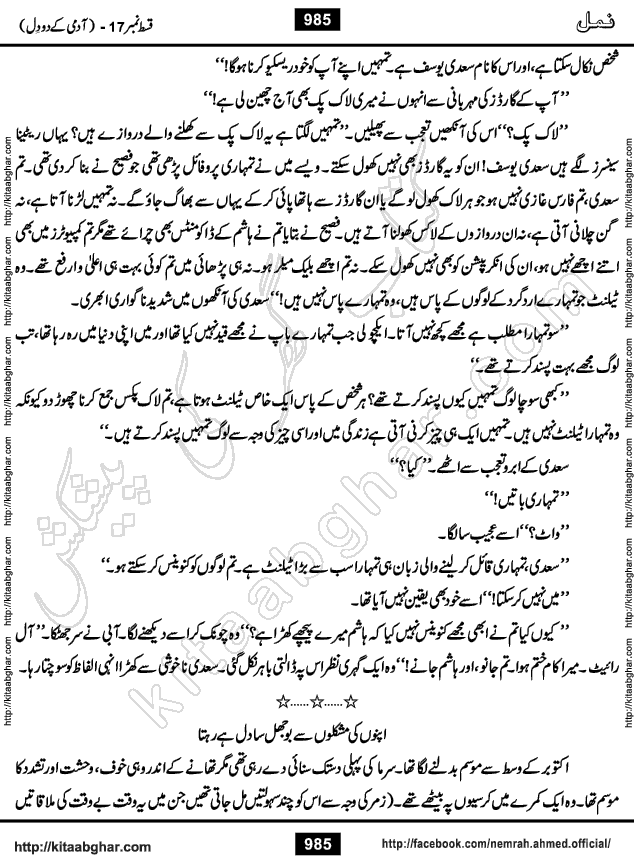 نمل
985
قسط نمبر 17 - (آدمی کے دو دِل)
شخص نکال سکتا ہے، اور اس کا نام سعدی یوسف ہے۔ تمہیں اپنے آپ کو خود ریسکیو کرنا ہوگا!‘‘
’’آپ کے گارڈز کی مہربانی سے انہوں نے میری لاک پک بھی آج چھین لی ہے!‘‘
’’لاک پک؟‘‘ اس کی آنکھیں تعجب سے پھیلیں۔ ’’تمہیں لگتا ہے یہ لاک پک سے کھلنے والے دروازے ہیں؟ یہاں ریٹینا
سینسرز لگے ہیں سعدی یوسف! ان کو یہ گارڈز بھی نہیں کھول سکتے۔ ویسے میں نے تمہاری پروفائل پڑھی تھی جو فصیح نے بنا کر دی تھی۔ تم
سعدی، تم فارس غازی نہیں ہو جو ہر لاک کھول لو گے یا ان گارڈز سے ہاتھا پائی کر کے یہاں سے بھاگ جاؤ گے۔ نہ تمہیں لڑنا آتا ہے، نہ
گن چلانی آتی ہے، نہ ان دروازوں کے لاکس کھولنا آتے ہیں۔ فصیح نے بتایا تم نے ہاشم کے ڈاکومنٹس بھی چرائے تھے مگر تم کمپیوٹرز میں بھی
اتنے اچھے نہیں ہو، ان کی انکرپشن کو بھی نہیں کھول سکے۔ نہ تم اچھے بلیک میلر ہو۔ نہ ہی پڑھائی میں تم کوئی بہت ہی اعلیٰ و ارفع تھے۔ وہ
ٹیلنٹ جو تمہارے اردگرد کے لوگوں کے پاس ہیں، وہ تمہارے پاس نہیں ہیں!‘‘ سعدی کی آنکھوں میں شدید ناگواری ابھری۔
’’سو تمہارا مطلب ہے مجھے کچھ نہیں آتا۔ ایکچولی جب تمہارے باپ نے مجھے قید نہیں کیا تھا اور میں اپنی دنیا میں رہ رہا تھا، تب
لوگ مجھے بہت پسند کرتے تھے۔‘‘
’’کبھی سوچا لوگ تمہیں کیوں پسند کرتے تھے؟ ہر شخص کے پاس ایک خاص ٹیلنٹ ہوتا ہے، تم لاک پکس جمع کرنا چھوڑ دو کیونکہ
وہ تمہارا ٹیلنٹ نہیں ہیں۔ تمہیں ایک ہی چیز کرنی آتی ہے زندگی میں اور اسی چیز کی وجہ سے لوگ تمہیں پسند کرتے ہیں۔‘‘
سعدی کے ابرو تعجب سے اٹھے۔ ’’کیا؟‘‘
’’تمہاری باتیں!‘‘
’’واٹ؟‘‘ اسے عجیب سا لگا۔
’’سعدی، تمہاری قائل کر لینے والی زبان ہی تمہارا سب سے بڑا ٹیلنٹ ہے۔ تم لوگوں کو کنوینس کر سکتے ہو۔‘‘
’’میں نہیں کر سکتا!‘‘ اسے خود بھی یقین نہیں آیا تھا۔
’’کیوں کیا تم نے ابھی مجھے کنوینس نہیں کیا کہ ہاشم میرے پیچھے کھڑا ہے؟‘‘ وہ چونک کر اسے دیکھنے لگا۔ آبی نے سر جھٹکا۔ ’’آل
رائیٹ۔ میرا کام ختم ہوا۔ تم جانو، اور ہاشم جانے!‘‘ وہ ایک گہری نظر اس پہ ڈالتی باہر نکل گئی۔ سعدی ناخوشی سے کھڑا انہی الفاظ کو سوچتا رہا۔
☆......☆......☆
اپنوں کی مشکلوں سے بوجھل سا دل ہے رہتا
اکتوبر کے وسط سے موسم بدلنے لگا تھا۔ سرما کی پہلی دستک سنائی دے رہی تھی مگر تھانے کے اندر وہی خوف، وحشت اور تشدد کا
موسم تھا۔ وہ ایک کمرے میں کرسیوں پہ بیٹھے تھے۔ (زمر کی وجہ سے اس کو چند سہولتیں مل جاتی تھیں جن میں یہ وقت بے وقت کی ملاقاتیں
http://kitaabghar.com
http://kitaabghar.com
http://kitaabghar.com
http://kitaabghar.com
http://kitaabghar.com
http://kitaabghar.com
http://kitaabghar.com
http://kitaabghar.com
کتاب گھر کی پیشکش
kitaabghar.com
http://kitaabghar.com
985
http://facebook.com/nemrah.ahmed.official/